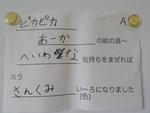 ピカピカ A
あーか の絵の具〜
へいわ学な 気持ちをまぜれば
ホラ
さんくみ い〜ろになりました
(色)